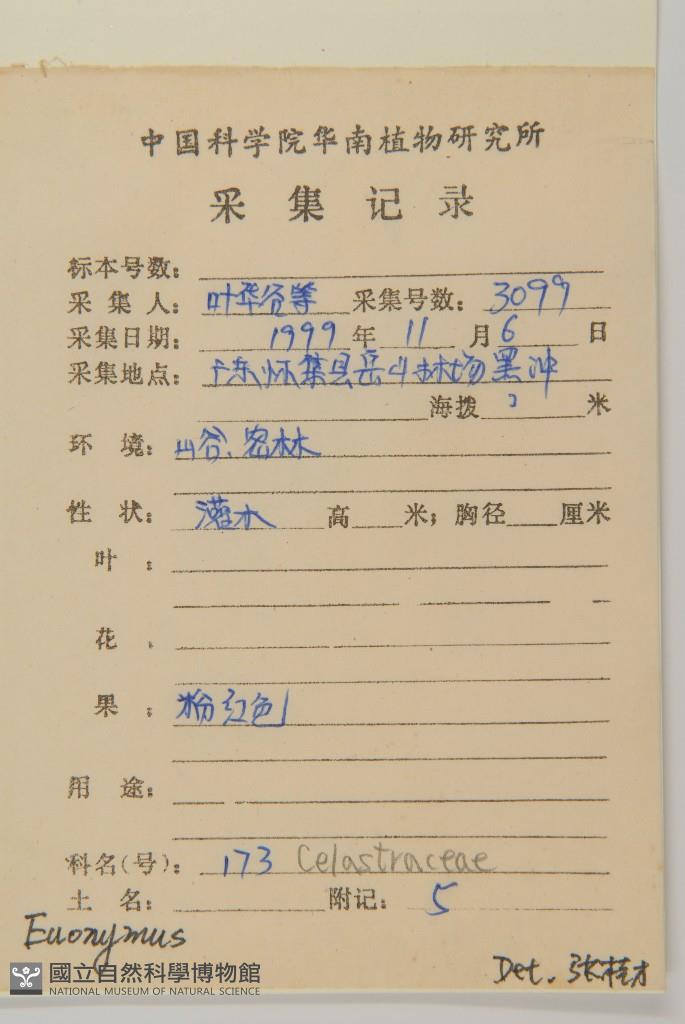 中国科学院华南植物研究所
采集记录
标本号数:
采集人: 叶华谷等 采集号数: 3099
采集日期: 1999 年 11 月 6 日
采集地点: 广东怀集县岳山林场黑冲
海拨 ? 米
环境: 山谷、密林
性状: 灌木 高 米; 胸径 厘米
叶:
花:
果: 粉红色
用途:
科名(号): 173 Celastraceae
土名: 附记: 5
Euonymus
Det. 张桂才
國立自然科學博物館
NATIONAL MUSEUM OF NATURAL SCIENCE